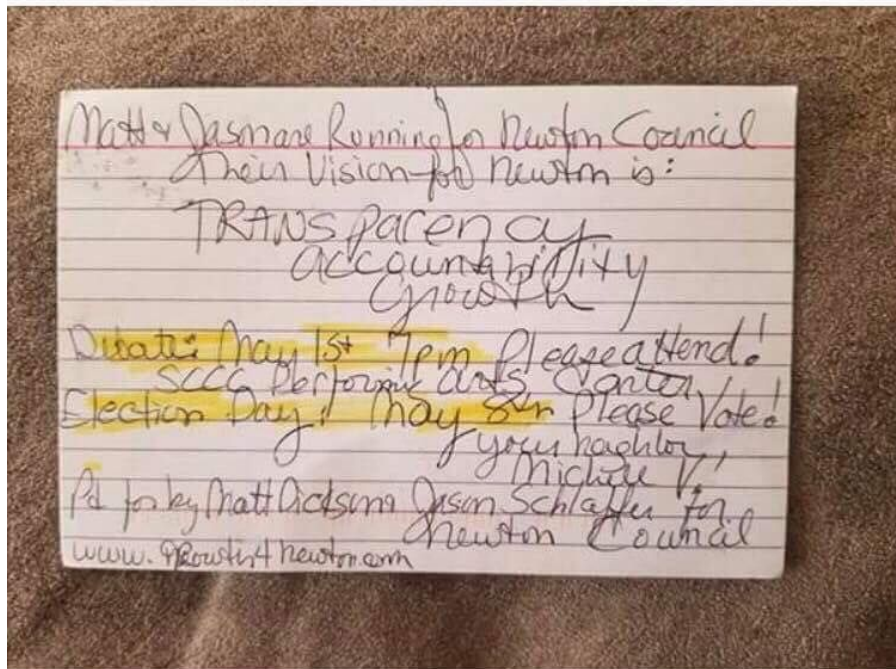 Matt & Jason are Running for Newton Council
Their Vision for Newton is:
TRANSparency
accountability
Growth
Debate: May 1st 7pm Please attend!
SCCC Performing Arts Center
Election Day! May 8th Please Vote!
your neghbor,
Michele V.
Pd for by Matt Dickson & Jason Schlaffer for
Newton Council
www.growth4newton.com